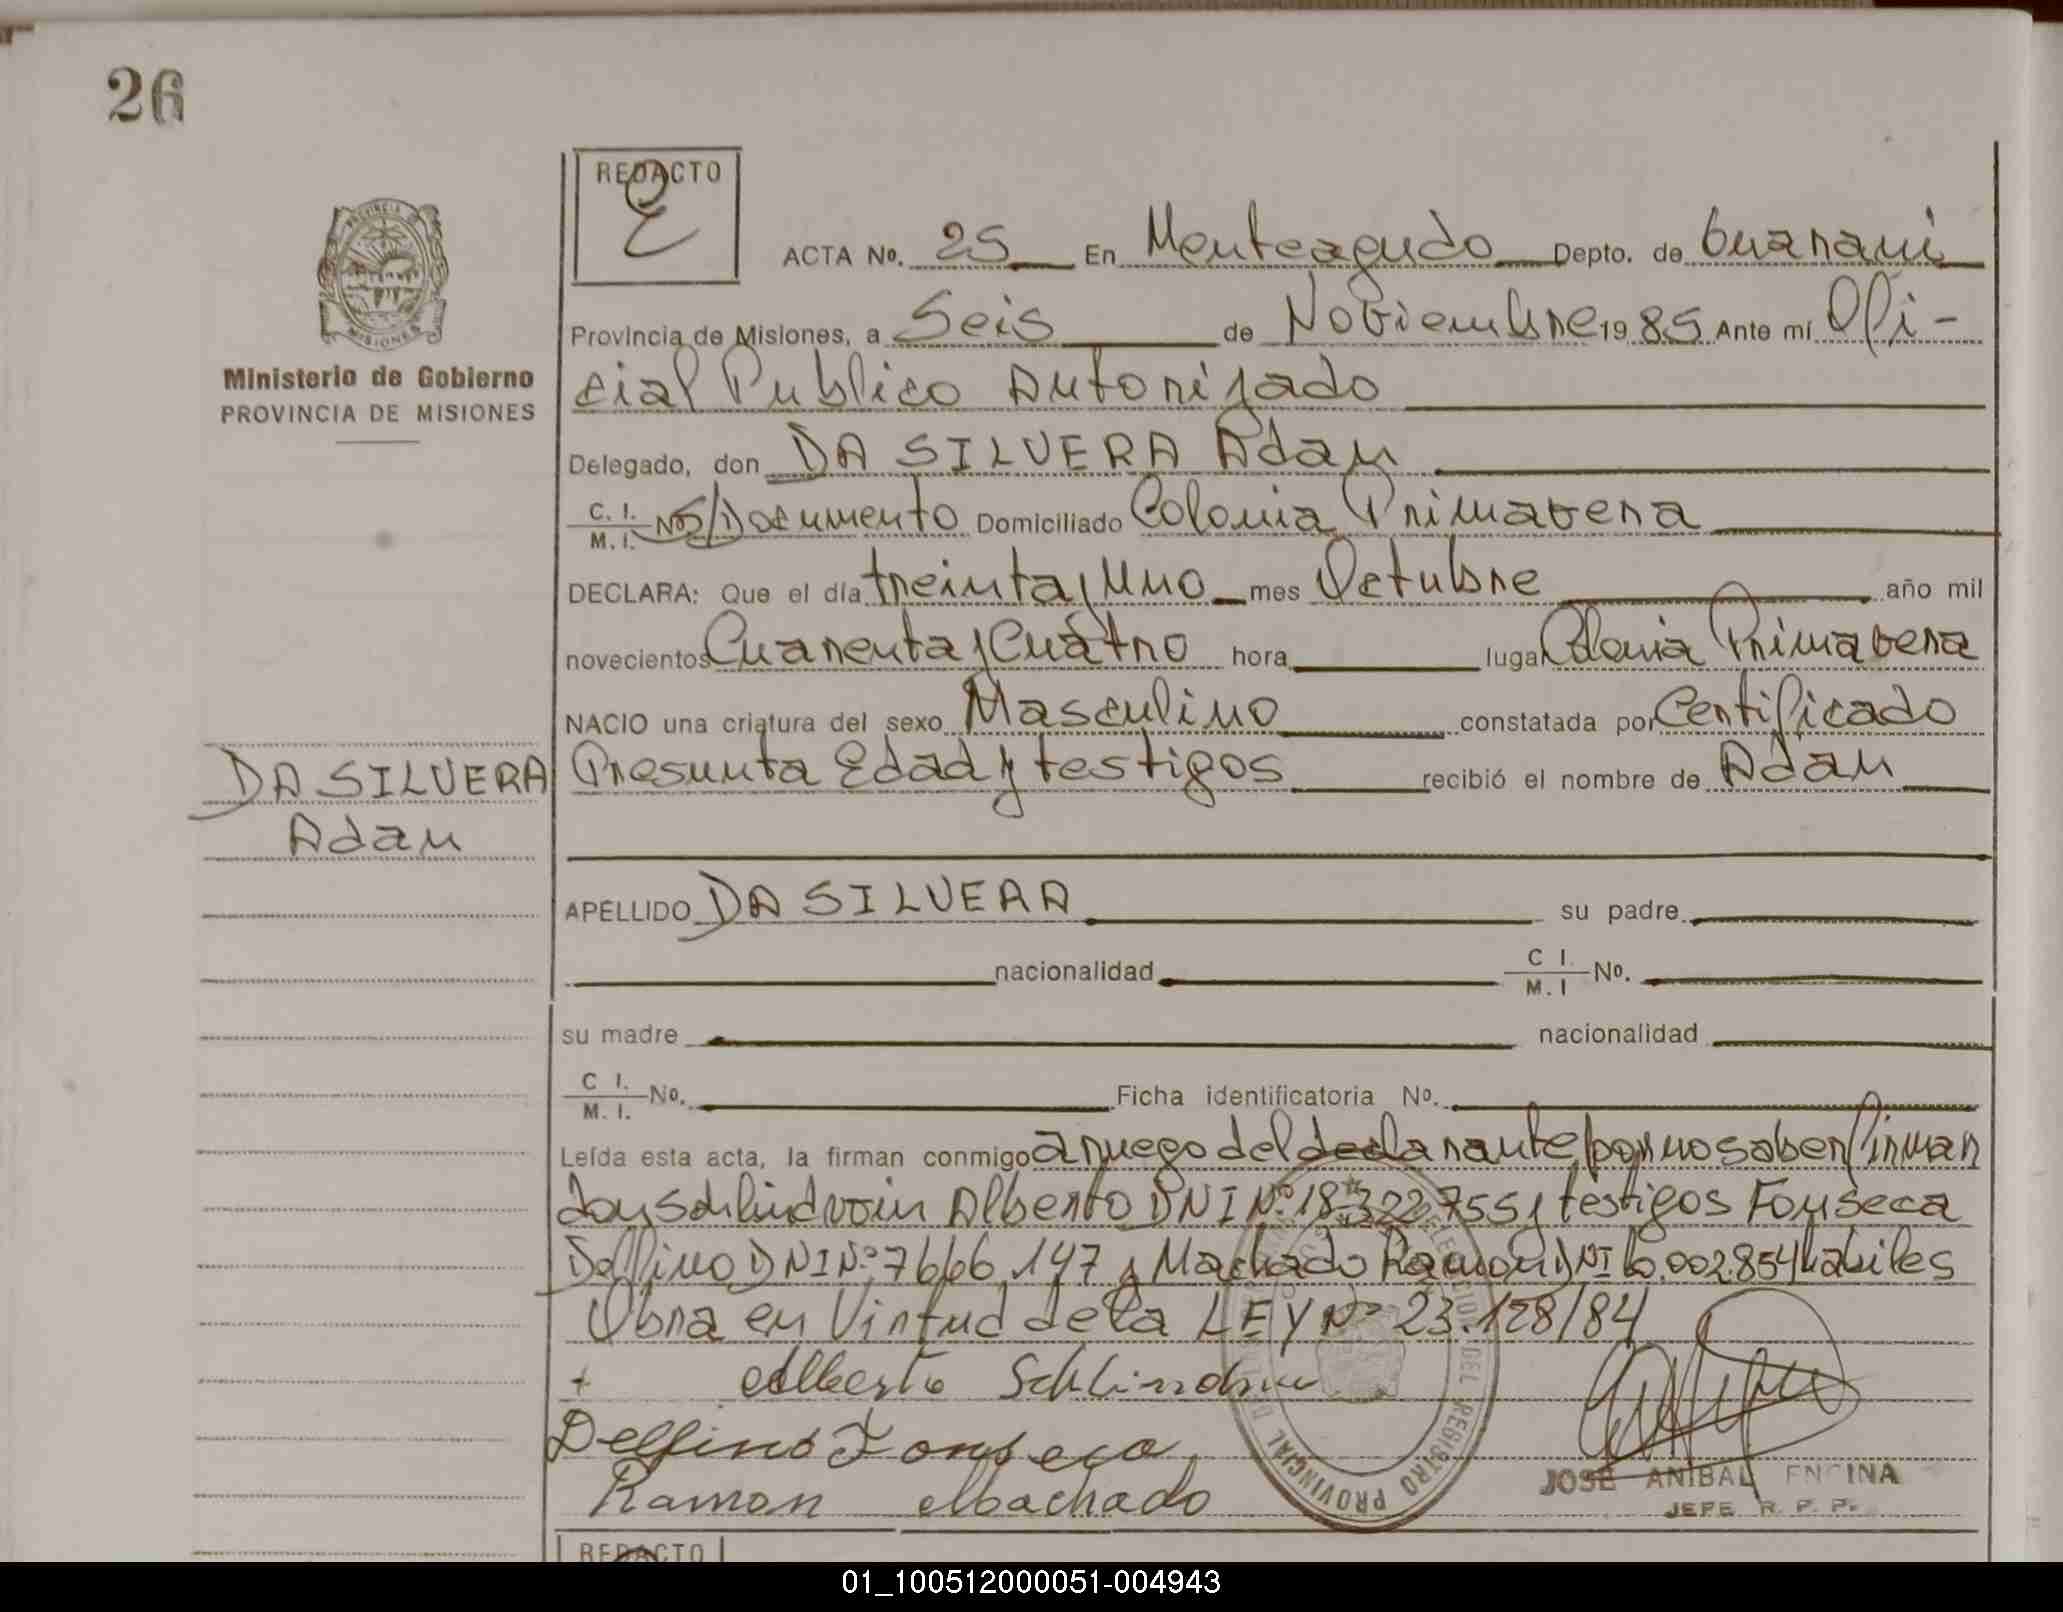 26
REDACTO
E
ACTA No. 25 En Monteagudo Depto. de Guarani
Provincia de Misiones, a Seis de Nobiembre 1985 Ante mí Ofi-
cial Publico Autorizado
Delegado, don DA SILVERA Adan
C. I. M. I. No S/Documento Domiciliado Colonia Primavera
DECLARA: Que el día treinta y Uno mes Octubre año mil
novecientos Cuarenta y Cuatro hora lugar Colonia Primavera
NACIO una criatura del sexo Masculino constatada por Certificado
Presunta Edad y testigos recibió el nombre de Adan
APELLIDO DA SILVERA su padre
nacionalidad C I. M. I No.
su madre nacionalidad
C I. M. I. No. Ficha identificatoria No.
Leída esta acta, la firman conmigo a ruego del declarante por no saber firmar
don Schlindvoin Alberto DNI Nº 18.322.755 y testigos Fonseca
Delfino DNI Nº 7.666.147 y Machado Ramon DNI 6.002.854 habiles
Obra en Virtud de la LEY Nº 23.128/84
+ Alberto
Delfino Fonseca
Ramon Machado
JOSE ANIBAL ENCINA
JEFE R. P. P.
PROVINCIA MISIONES
Ministerio de Gobierno
PROVINCIA DE MISIONES
DA SILVERA
Adan
REGISTRO PROVINCIAL
REDACTO
01_100512000051-004943